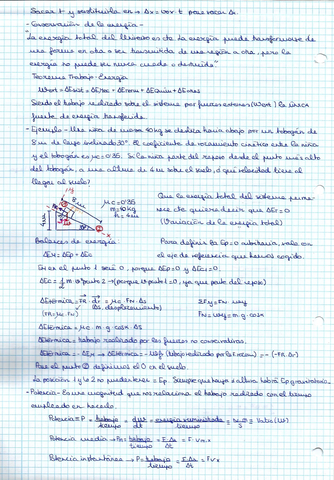 Sacar t y sustituirla en → Δx = vox t para sacar Δx.
- Conservación de la energía -
"La energía total del Universo es cte. La energía puede transformarse de
una forma en otra o ser transmitida de una región a otra, pero la
energía no puede ser nunca creada o destruida"
Teorema Trabajo-Energía
Wext = ΔEsist = ΔEmec + ΔEterm + ΔEquim + ΔEotras
Siendo el trabajo realizado sobre el sistema por fuerzas externas (Wext) la única
fuente de energía transferida.
- Ejemplo - Una niña de masa 40kg se desliza hacia abajo por un tobogán de
8 m de largo inclinado 30°. El coeficiente de rozamiento cinético entre la niña
y el tobogán es μc = 0'35. Si la niña parte del reposo desde el punto más alto
del tobogán, a una altura de 4 m sobre el suelo, ¿a qué velocidad tiene al
llegar al suelo?
8m
μc = 0'35
m = 40kg
h = 4m
4m
30°
Que la energía total del sistema permanece
cte quiere decir que ΔE = 0
(Variación de la energía total)
Balance de energía
ΔEM = ΔEp + ΔEc
Para definir la Ep = 0 arbitraria, vale en
el eje de referencia que hemos cogido.
EM en el punto 1 será 0, porque ΔEp = 0 y ΔEc = 0.
(porque v punto 1 = 0, ya que parte del reposo)
ΔEtérmica = FR · dr = μc · FN · Δs
(FR = μ · FN)
(Δs. desplazamiento)
ΔEtérmica = μc · m · g · cos α · Δs
ΔEtérmica = trabajo realizado por las fuerzas no conservativas.
Pon el punto 2 definimos el 0 en el suelo.
La posición 1 y la 2 no pueden tener = Ep. Siempre que haya = altura habrá Ep gravitatoria.
- Potencia - Es una magnitud que nos relaciona el trabajo realizado con el tiempo
empleado en hacerlo.
Potencia = P = trabajo / tiempo = dW / dt = energía suministrada / tiempo = J / s = Vatio (W)
Potencia media → Pm = trabajo / tiempo = F · Δx / Δt = F · vm x
Potencia instantánea → P = trabajo / tiempo = F · Δx / Δt = F v x